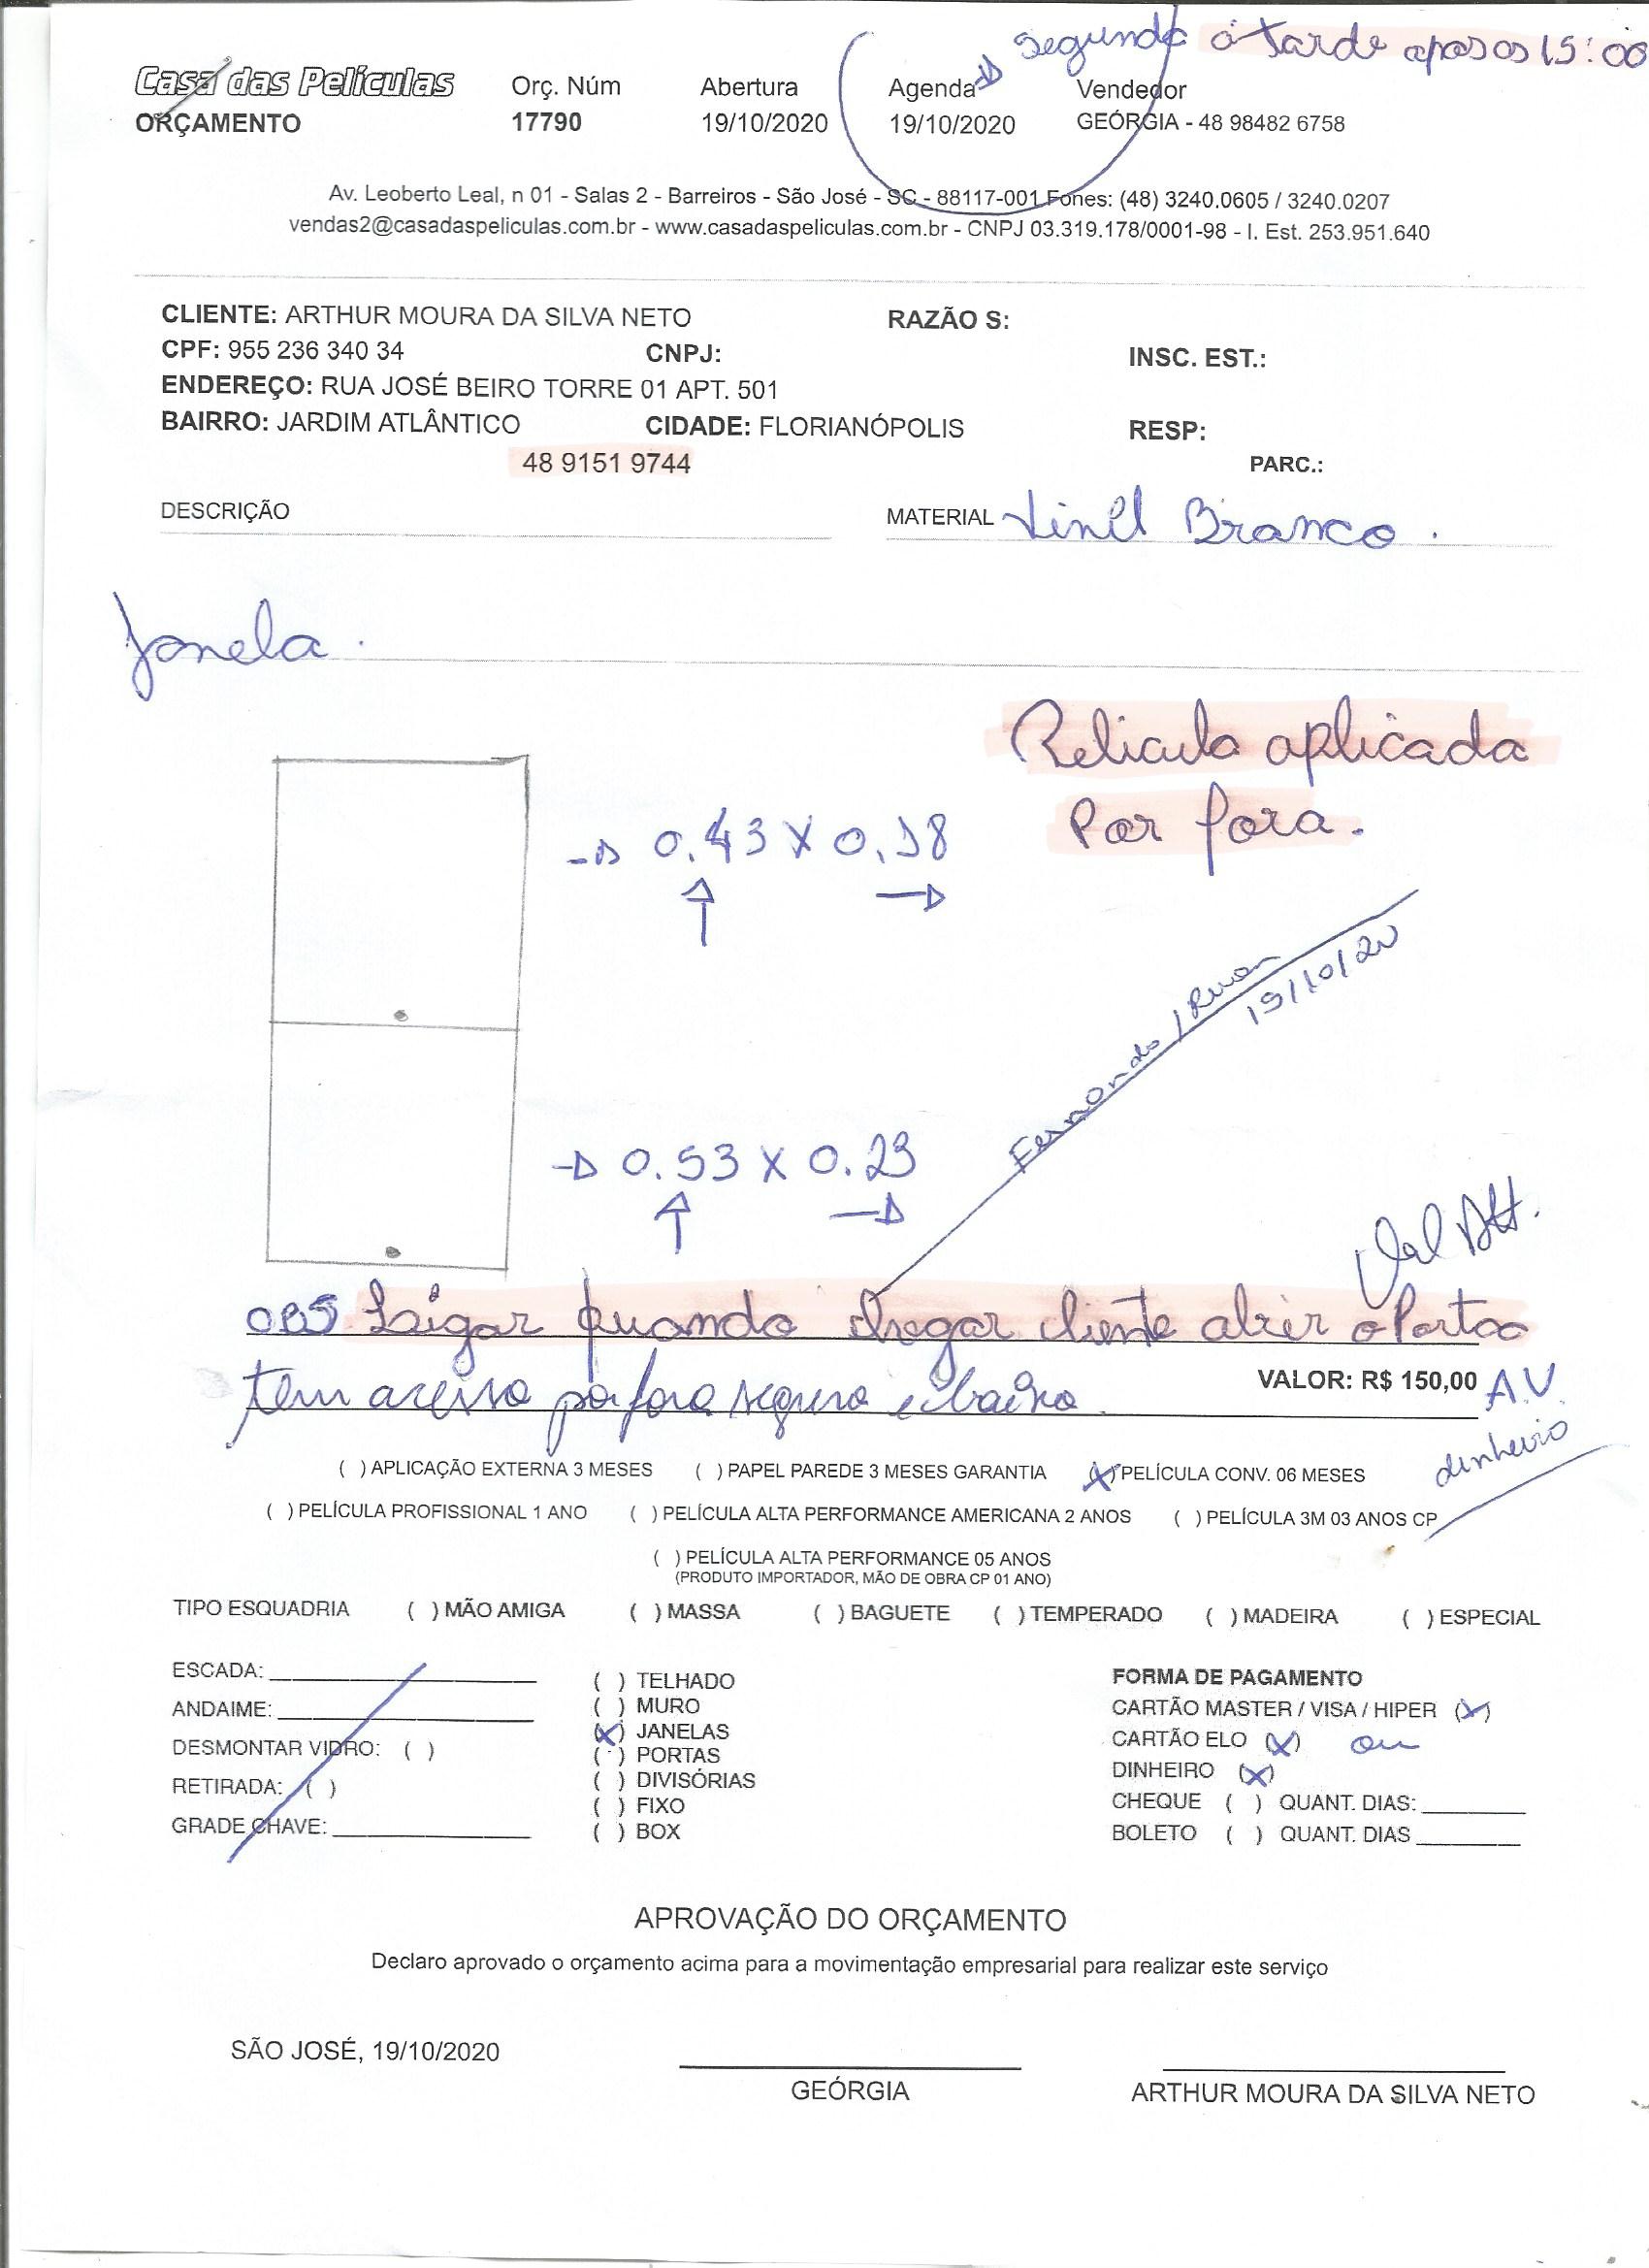 segunda á tarde apos as 15:00
Casa das Películas
ORÇAMENTO
Orç. Núm
17790
Abertura
19/10/2020
Agenda
19/10/2020
Vendedor
GEÓRGIA - 48 98482 6758
Av. Leoberto Leal, n 01 - Salas 2 - Barreiros - São José - SC - 88117-001 Fones: (48) 3240.0605 / 3240.0207
vendas2@casadaspeliculas.com.br - www.casadaspeliculas.com.br - CNPJ 03.319.178/0001-98 - I. Est. 253.951.640
CLIENTE: ARTHUR MOURA DA SILVA NETO RAZÃO S:
CPF: 955 236 340 34 CNPJ: INSC. EST.:
ENDEREÇO: RUA JOSÉ BEIRO TORRE 01 APT. 501
BAIRRO: JARDIM ATLÂNTICO CIDADE: FLORIANÓPOLIS RESP:
48 9151 9744 PARC.:
DESCRIÇÃO MATERIAL Vinil Branco.
Janela.
Pelicula aplicada
Por fora.
0.43 X 0.38
Fernando / Ruan
19/10/20
0.53 X 0.23
OBS Ligar quando chegar cliente abrir o Portao
tem acesso por fora seguro e baixo.
VALOR: R$ 150,00 A.V
dinheiro
( ) APLICAÇÃO EXTERNA 3 MESES ( ) PAPEL PAREDE 3 MESES GARANTIA (X) PELÍCULA CONV. 06 MESES
( ) PELÍCULA PROFISSIONAL 1 ANO ( ) PELÍCULA ALTA PERFORMANCE AMERICANA 2 ANOS ( ) PELÍCULA 3M 03 ANOS CP
( ) PELÍCULA ALTA PERFORMANCE 05 ANOS
(PRODUTO IMPORTADOR, MÃO DE OBRA CP 01 ANO)
TIPO ESQUADRIA ( ) MÃO AMIGA ( ) MASSA ( ) BAGUETE ( ) TEMPERADO ( ) MADEIRA ( ) ESPECIAL
ESCADA:
ANDAIME:
DESMONTAR VIDRO: ( )
RETIRADA: ( )
GRADE CHAVE:
( ) TELHADO
( ) MURO
(X) JANELAS
( ) PORTAS
( ) DIVISÓRIAS
( ) FIXO
( ) BOX
FORMA DE PAGAMENTO
CARTÃO MASTER / VISA / HIPER (X)
CARTÃO ELO (X) ou
DINHEIRO (X)
CHEQUE ( ) QUANT. DIAS:
BOLETO ( ) QUANT. DIAS
APROVAÇÃO DO ORÇAMENTO
Declaro aprovado o orçamento acima para a movimentação empresarial para realizar este serviço
SÃO JOSÉ, 19/10/2020
GEÓRGIA
ARTHUR MOURA DA SILVA NETO